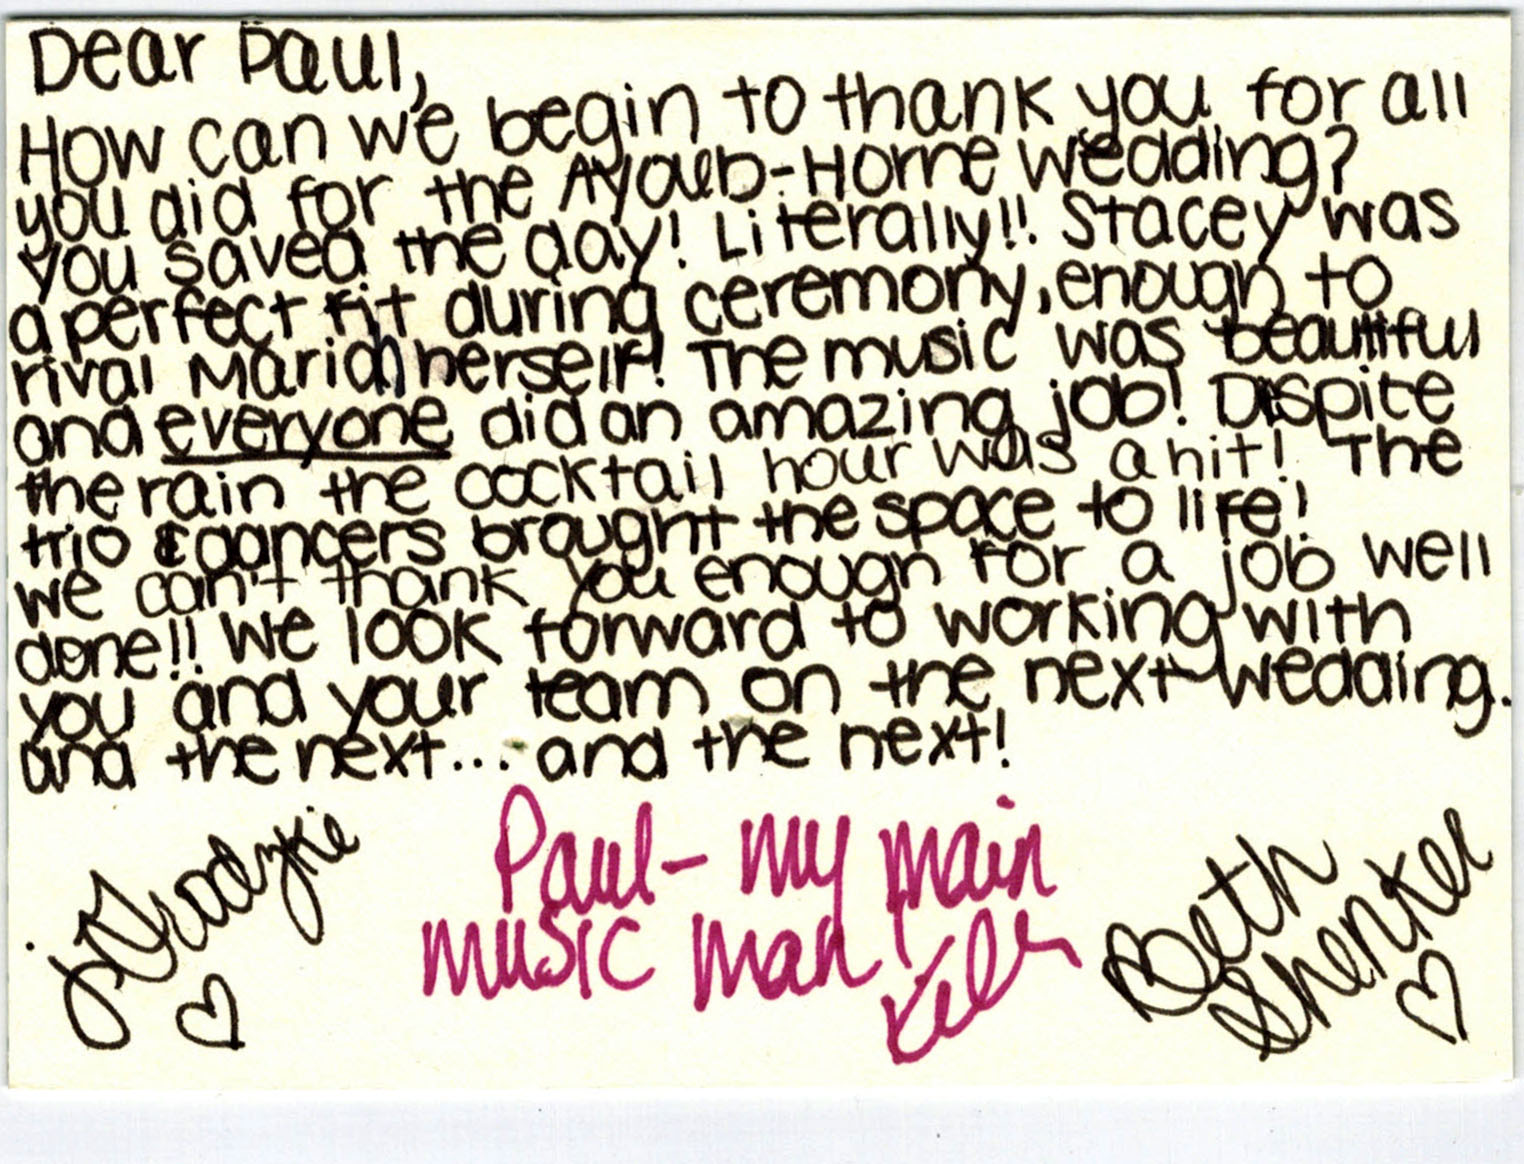 Dear Paul,
How can we begin to thank you for all
you did for the Ayoub-Horne wedding?
you saved the day! Literally!! Stacey was
a perfect fit during ceremony, enough to
rival Mariah herself! The music was beautiful
and everyone did an amazing job! Dispite
the rain the cocktail hour was a hit! The
trio & dancers brought the space to life!
we can't thank you enough for a job well
done!! We look forward to working with
you and your team on the next wedding.
and the next... and the next!
Paul - my main
music man!
Beth
Shenker